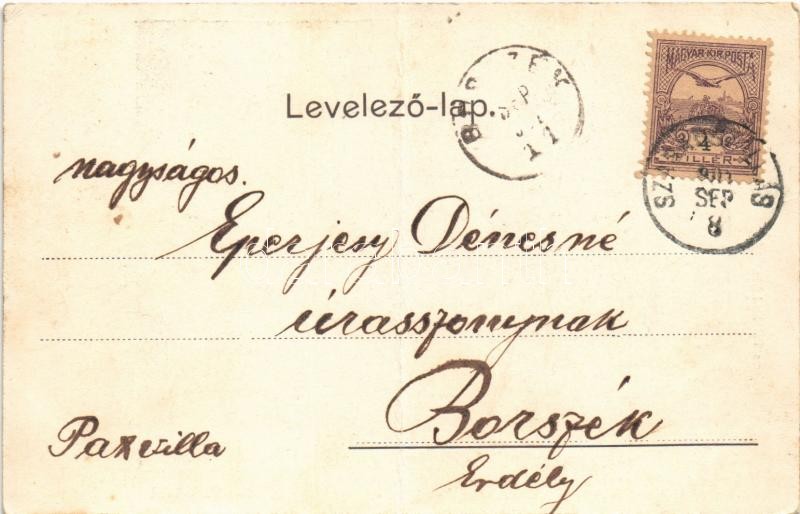 MAGYAR KIR. POSTA
4
FILLÉR
SEP
8
SEP
11
Levelező-lap.
nagyságos.
Eperjesy Dénesné
úrasszonynak
Borszék
Paxvilla
Erdély